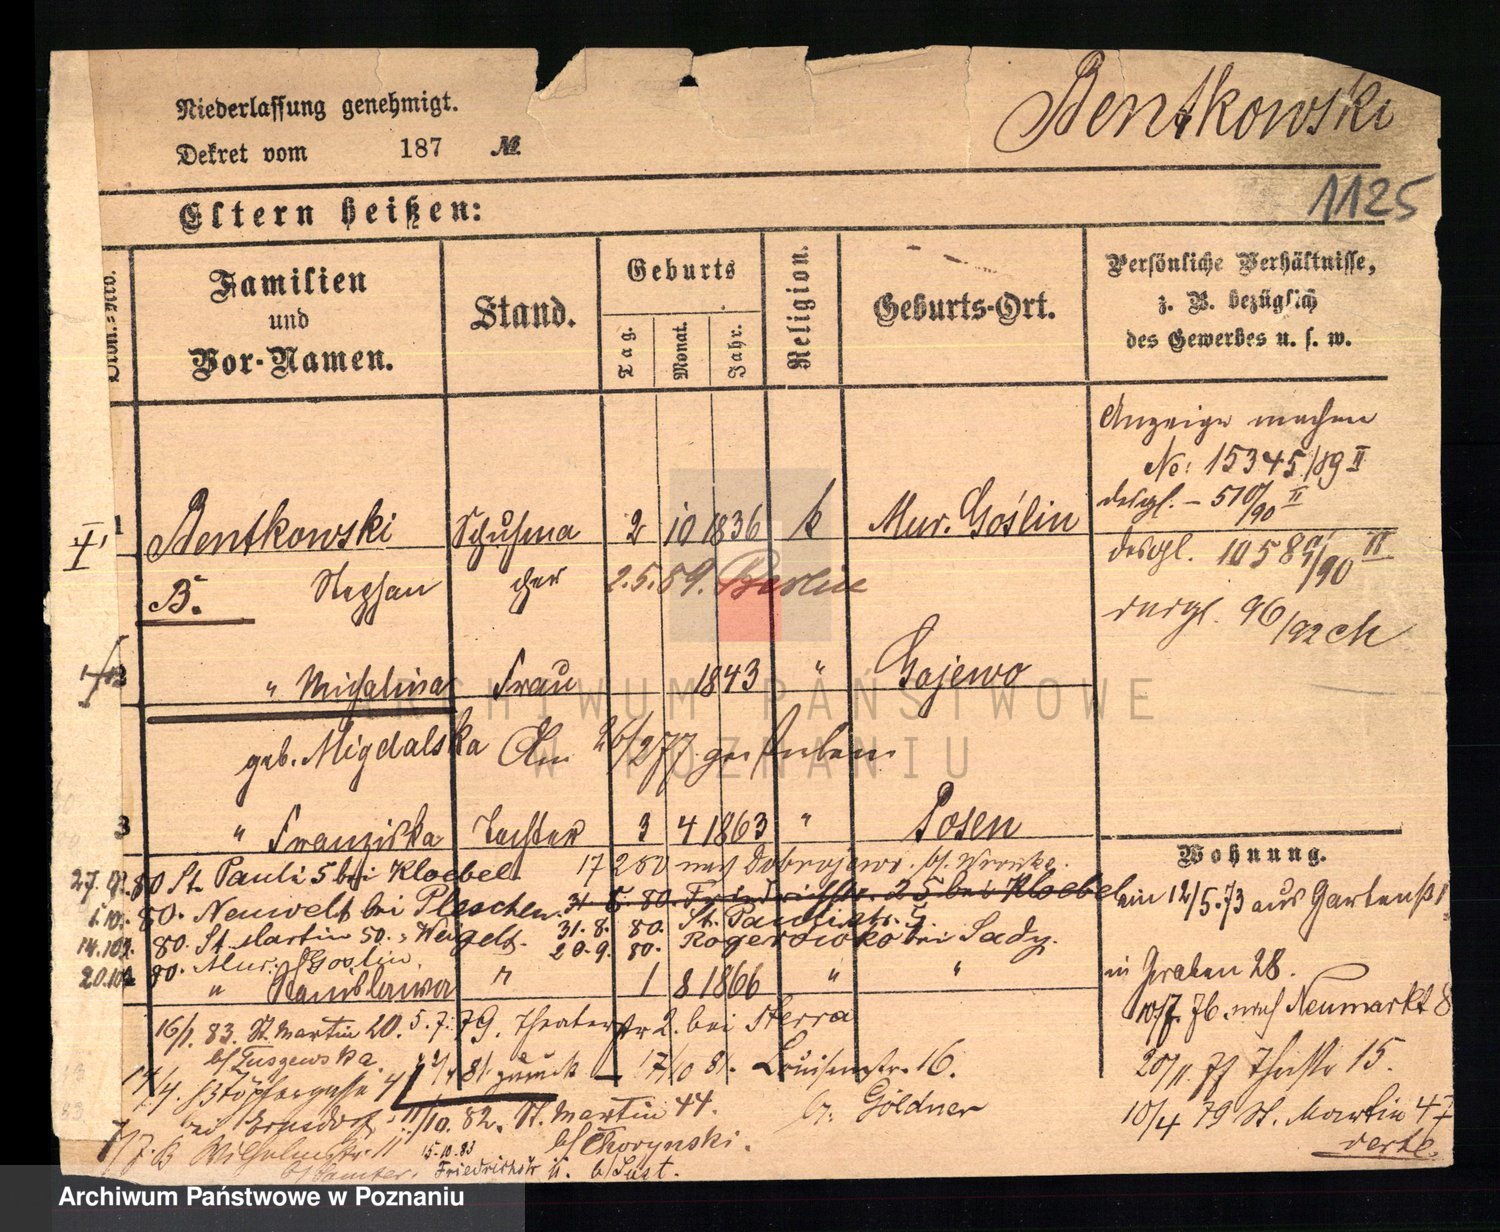 Niederlassung genehmigt.
Dekret vom 187 №
Bentkowski
1125
Eltern heißen:
Ordn.-Nro.
Familien
und
Vor-Namen.
Stand.
Geburts
Tag.
Monat.
Jahr.
Religion.
Geburts-Ort.
Persönliche Verhältnisse,
z. B. bezüglich
des Gewerbes u. s. w.
Anzeige machen
No: 15345/89 II
desgl. - 510/90 II
1 Bentkowski Schuhma 2 10 1836 k Mur. Goślin
desgl. 1058/90 II
B. Stephan cher 2.5.59. Berlin
desgl. 96/92 ch
2 " Michalina Frau 1843 " Gajewo
geb. Migdalska Am 26/2 77 gestorben
3 " Franziska Tochter 3 4 1863 " Posen
Wohnung.
27. 80 St. Pauli 5 bei Kloebel 17 2 80 nach
31 5 80. Friedrichstr. 25 bei Kloebel
ein 12/5.73 aus Gartenstr
80. Neuwelt bei Pleschen. 31. 8. 80. St. Paulistr. 5
14.10. 80. St. Martin 50. 20. 9. 80. bei Sady.
20.10 80. Mur. Goslin.
" Stanislawa " 1 8 1866 " "
in Graben 28.
10/7. 76. nach Neumarkt 8
16/1. 83. St. Martin 20. 5. 7. 79. Theaterstr 2. bei Sterra
b/Guszewska.
81 zurück - 17/10 81. Louisenstr. 16.
20/11 77 15.
14/4. Töpfergasse 4
10/10. 82. St. Martin 44. b. Göldner
10/4 79 St. Martin 47
b/Chorynski.
verte.
Wilhelmstr. 11 15.10.83 Friedrichstr 11. b/Lust.
ARCHIWUM PAŃSTWOWE
W POZNANIU
Archiwum Państwowe w Poznaniu